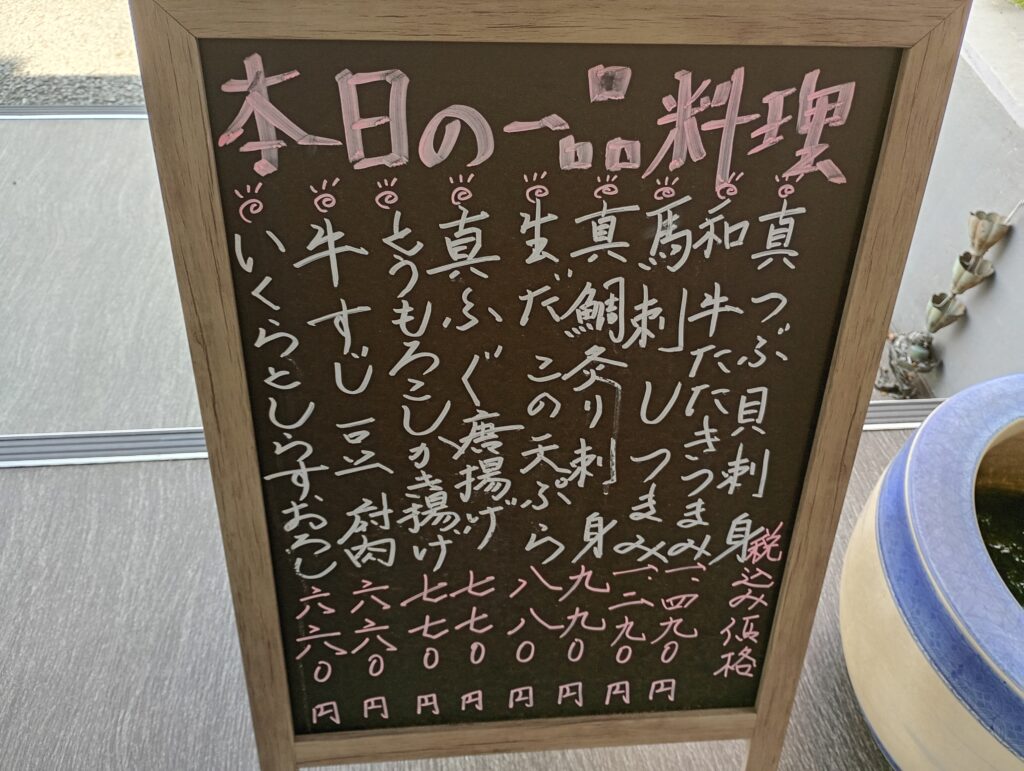 本日の一品料理
真つぶ貝刺身
税込み価格
和牛たたきつまみ 一、四九0円
馬刺しつまみ 一、二九0円
真鯛炙り刺身 九九0円
生だこの天ぷら 八八0円
真ふぐ唐揚げ 七七0円
とうもろこしかき揚げ 七七0円
牛すじ豆腐 六六0円
いくらとしらすおろし 六六0円